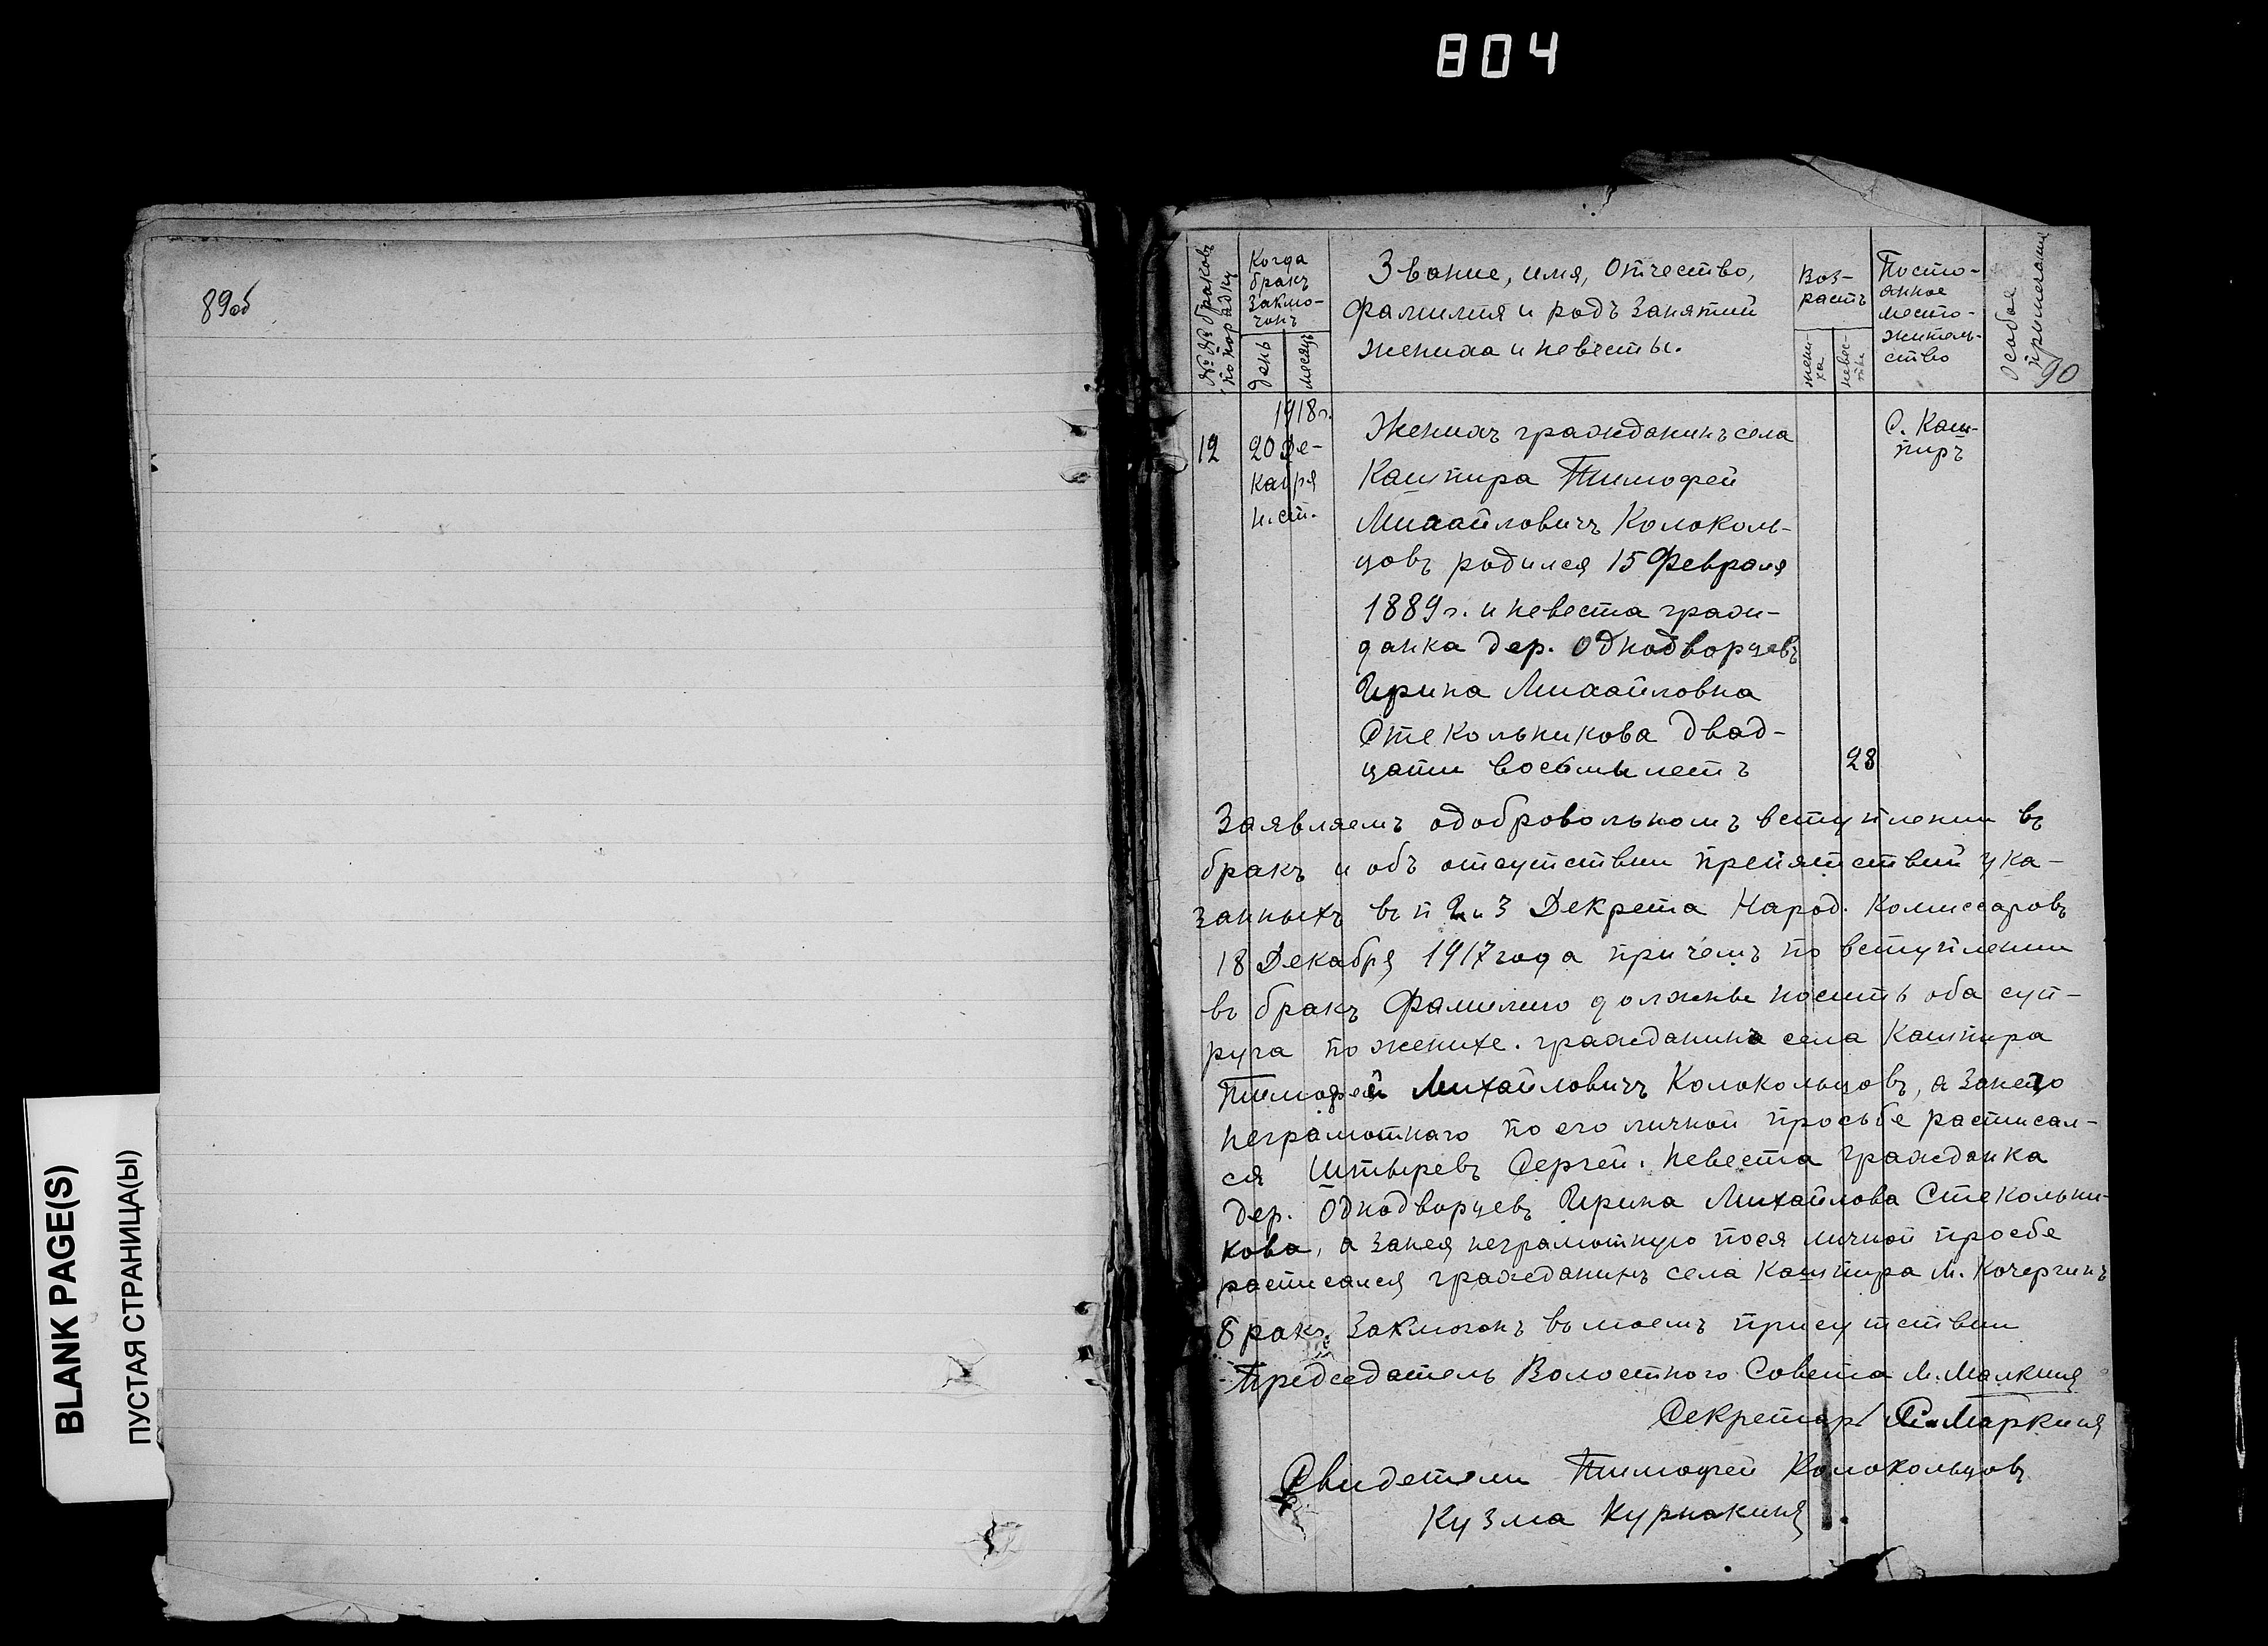 804
89об
BLANK PAGE(S)
ПУСТАЯ СТРАНИЦА(Ы)
№№ браковъ по порядку
Когда бракъ заключонъ
день
месяцъ
Звание, имя, отчество,
фамилия и родъ занятий
жениха и невесты.
Возрастъ
жениха
невесты
Посто-
янное
место-
житель-
ство
Особая примечания
90
12
1918г.
20 Де-
кабря
н.ст.
Женихъ гражданинъ села
Кашпира Тимофей
Михайловичъ Колоколь-
цовъ родился 15 Февраля
1889г. и невеста граж-
данка дер. Однодворцевъ
Ирина Михайловна
Стекольникова двад-
цати восьми летъ
28
С. Каш-
пиръ
Заявляемъ одобровольномъ вступлении въ
бракъ и объ отсутствии препятствий ука-
занныхъ въ п 2 и 3 Декрета Народ. Комиссаровъ
18 Декабря 1917 года причемъ по вступлении
въ бракъ Фамилию должны носить оба суп-
руга по женихе. гражданинъ села Кашпира
Тимофей Михайловичъ Колокольцовъ, а занего
неграмотнаго по его личной просьбе расписал-
ся Штыревъ Сергей. Невеста гражданка
дер. Однодворцевъ Ирина Михайлова Стекольни-
кова, а занея неграмотную поея личной просбе
расписался гражданинъ села Кашпира М. Кочергинъ
Бракъ заключонъ вмоемъ присутствии
Председатель Волостного Совета М. Малкинъ
Секретарь Маркинъ
Свидетели Тимофей Колокольцовъ
Кузма Курнакинъ